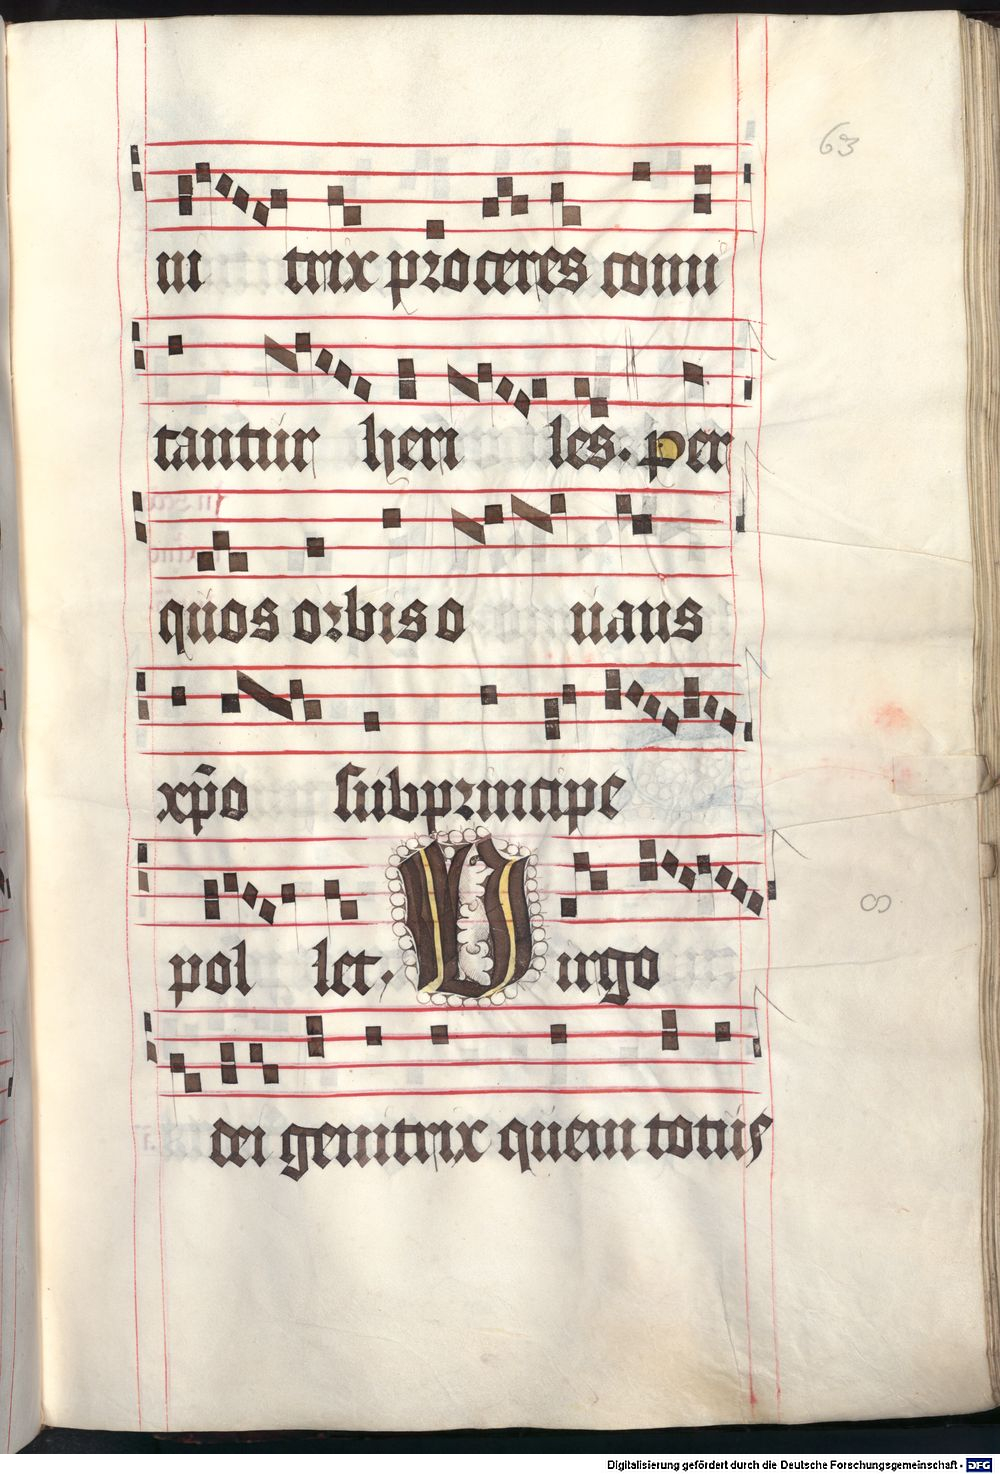 63
ui trix proceres comi
tantur heri les. per
quos orbis o uans
xp̄o sub principe
pol let. Uirgo
8
dei genitrix quem totus
Digitalisierung gefördert durch die Deutsche Forschungsgemeinschaft - DFG